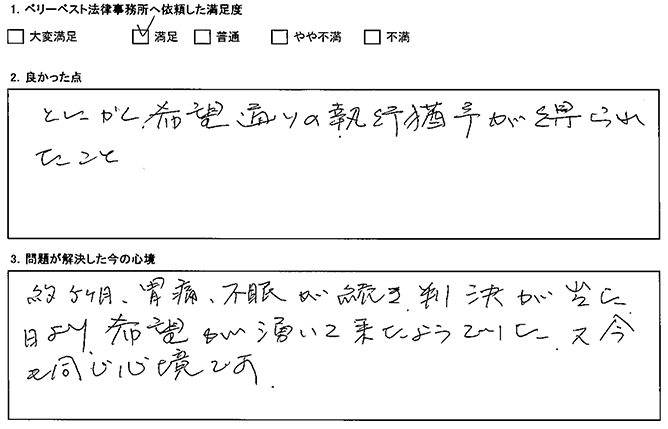 1. ベリーベスト法律事務所へ依頼した満足度
大変満足 満足 普通 やや不満 不満
2. 良かった点
とにかく、希望通りの執行猶予が得られ
たこと
3. 問題が解決した今の心境
約5ヶ月、胃痛、不眠が続き、判決が出た
日より、希望が湧いて来たようでした。又今
も同じ心境です。